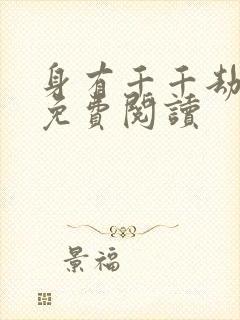 身有千千劫
免費閱讀
景福